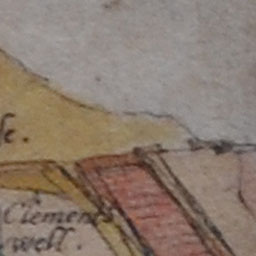 Clements
well.